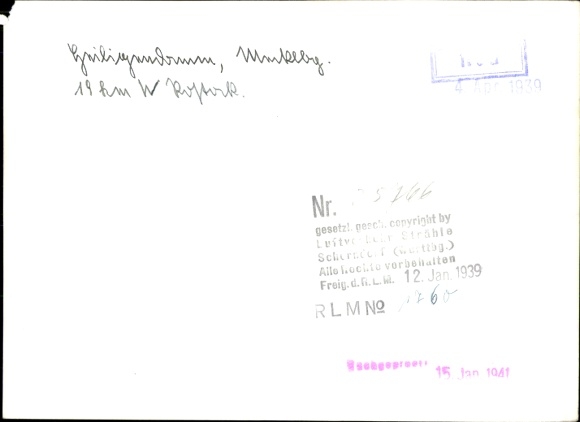 Heiligendamm, Mecklbg.
19 km W Rostock.
4. Apr. 1939
Nr.
gesetzl. gesch. copyright by
Luftverkehr Strähle
Schorndorf (Württbg.)
Alle Rechte vorbehalten
Freig. d. R.L.M. 12. Jan. 1939
RLM No 1260
15. Jan. 1941